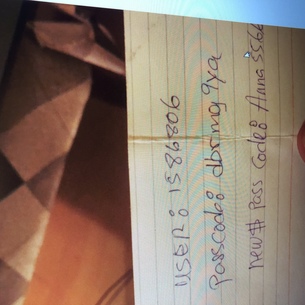 USER: 1586806
Passcode: dbrmg9ya
new# Pass Code: Anna 5566